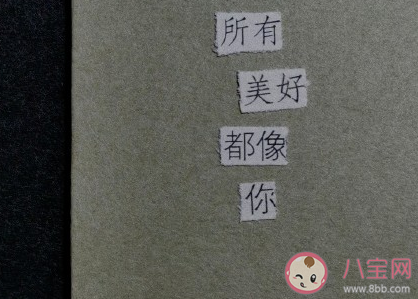 所有
美好
都像
你
八宝网
www.8bb.com